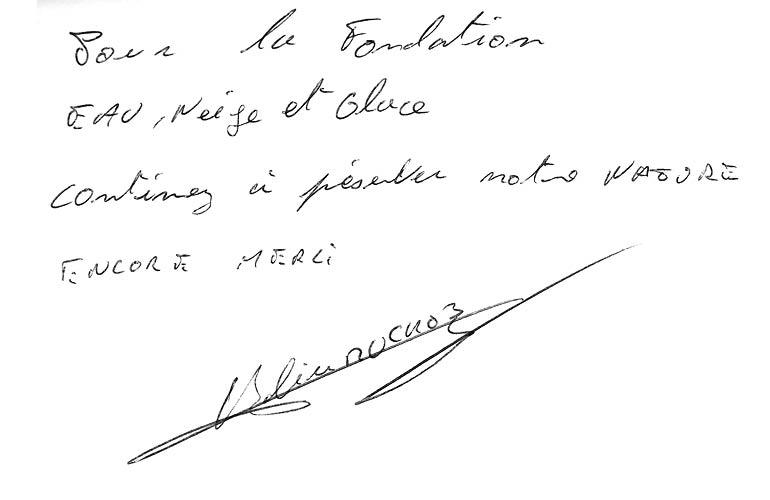 Pour la Fondation
EAU, Neige et Glace
Continuez à préserver notre NATURE
ENCORE MERCI
DUCROZ